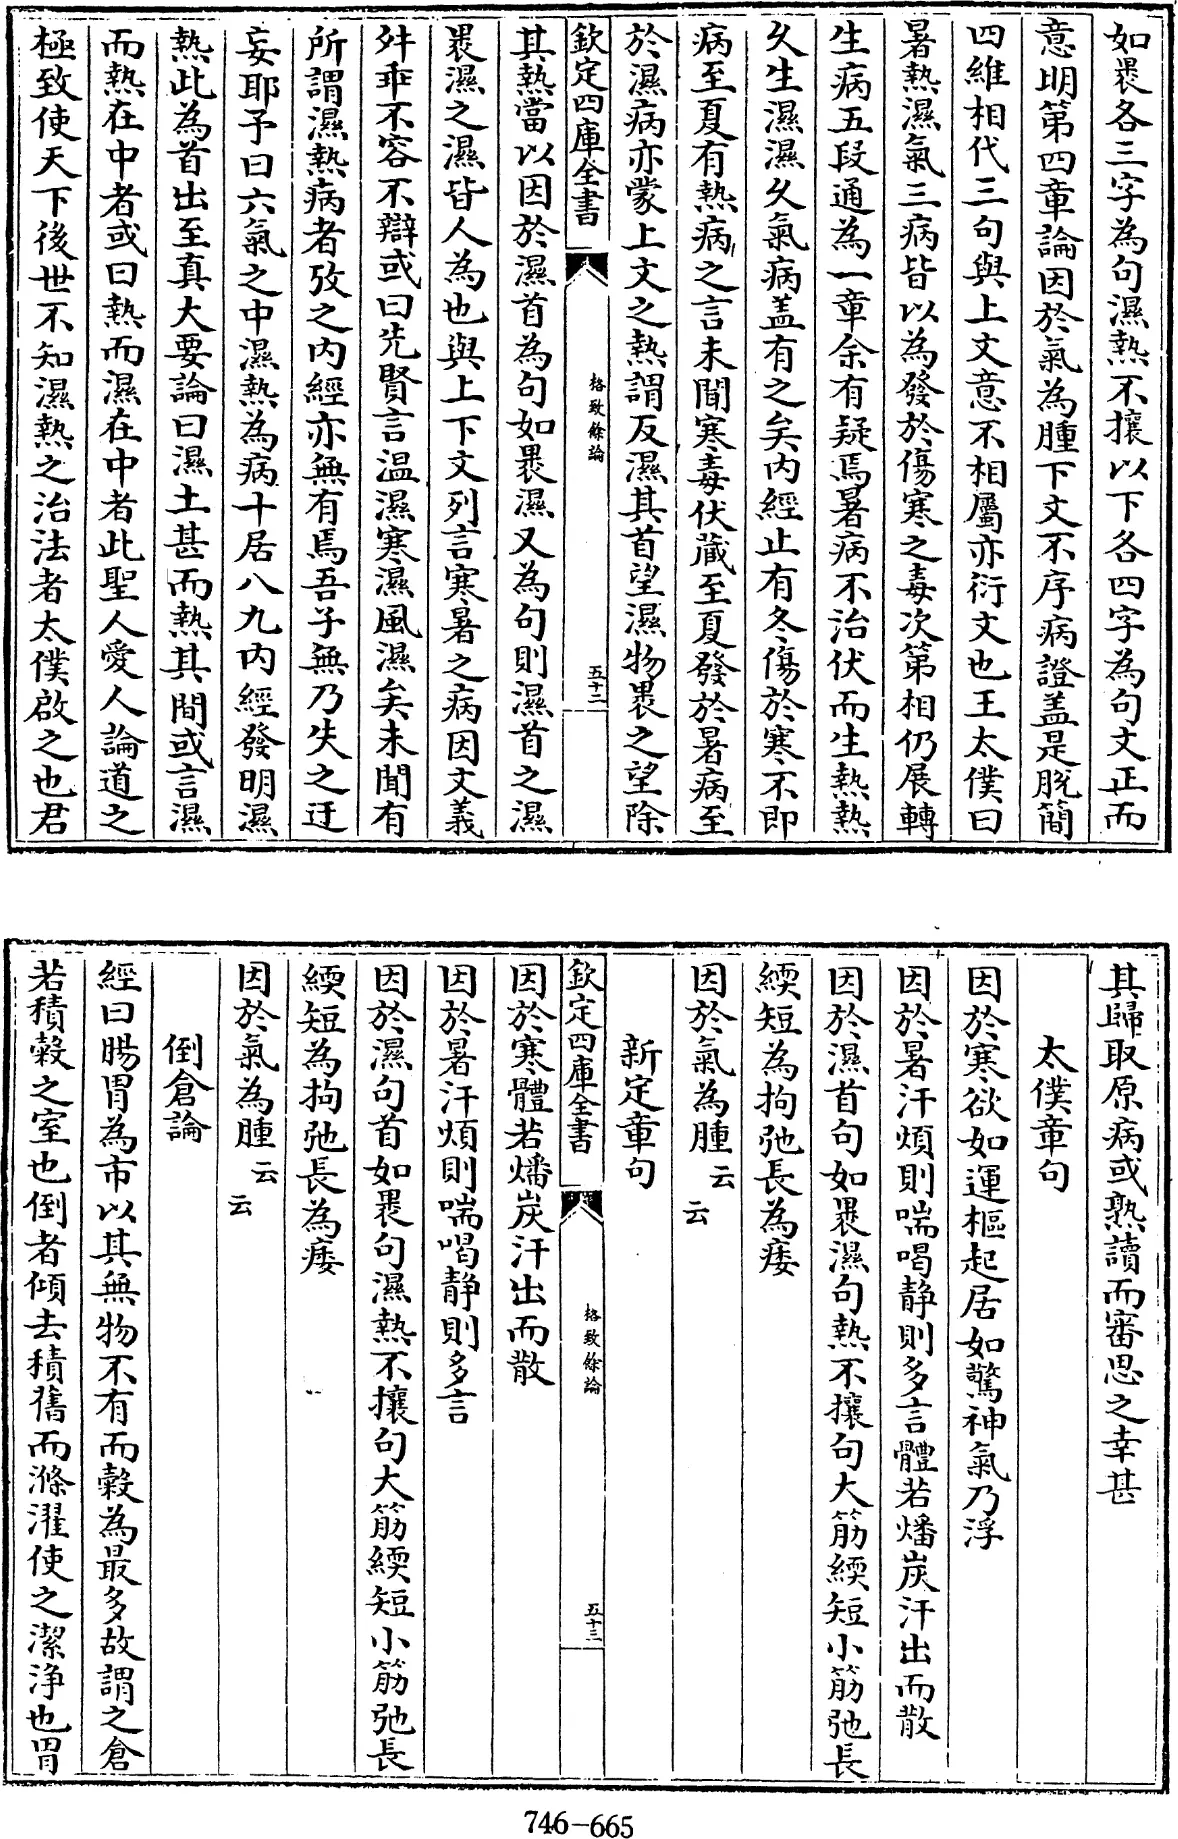 如褁各三字為句濕熱不攘以下各四字為句文正而
意明第四章論因於氣為腫下文不序病證盖是脫簡
四維相代三句與上文意不相屬亦衍文也王太僕曰
暑熱濕氣三病皆以為發於傷寒之毒次第相仍展轉
生病五段通為一章余有疑焉暑病不治伏而生熱熱
久生濕濕久氣病盖有之矣内經止有冬傷於寒不即
病至夏有熱病之言未聞寒毒伏藏至夏發於暑病至
於濕病亦蒙上文之熱謂反濕其首望濕物褁之望除
欽定四庫全書
格致餘論
五十二
其熱當以因於濕首為句如褁濕又為句則濕首之濕
褁濕之濕皆人為也與上下文列言寒暑之病因文義
舛乖不容不辯或曰先賢言温濕寒濕風濕矣未聞有
所謂濕熱病者攷之内經亦無有焉吾子無乃失之迂
妄耶予曰六氣之中濕熱為病十居八九内經發明濕
熱此為首出至真大要論曰濕土甚而熱其間或言濕
而熱在中者或曰熱而濕在中者此聖人愛人論道之
極致使天下後世不知濕熱之治法者太僕啟之也君
其歸取原病或熟讀而審思之幸甚
太僕章句
因於寒欲如運樞起居如驚神氣乃浮
因於暑汗煩則喘喝静則多言體若燔炭汗出而散
因於濕首句如褁濕句熱不攘句大筋緛短小筋弛長
緛短為拘弛長為痿
因於氣為腫云云
新定章句
欽定四庫全書
格致餘論
五十三
因於寒體若燔炭汗出而散
因於暑汗煩則喘喝静則多言
因於濕句首如褁句濕熱不攘句大筋緛短小筋弛長
緛短為拘弛長為痿
因於氣為腫云云
倒倉論
經曰腸胃為市以其無物不有而穀為最多故謂之倉
若積穀之室也倒者傾去積舊而滌濯使之潔净也胃
746-665